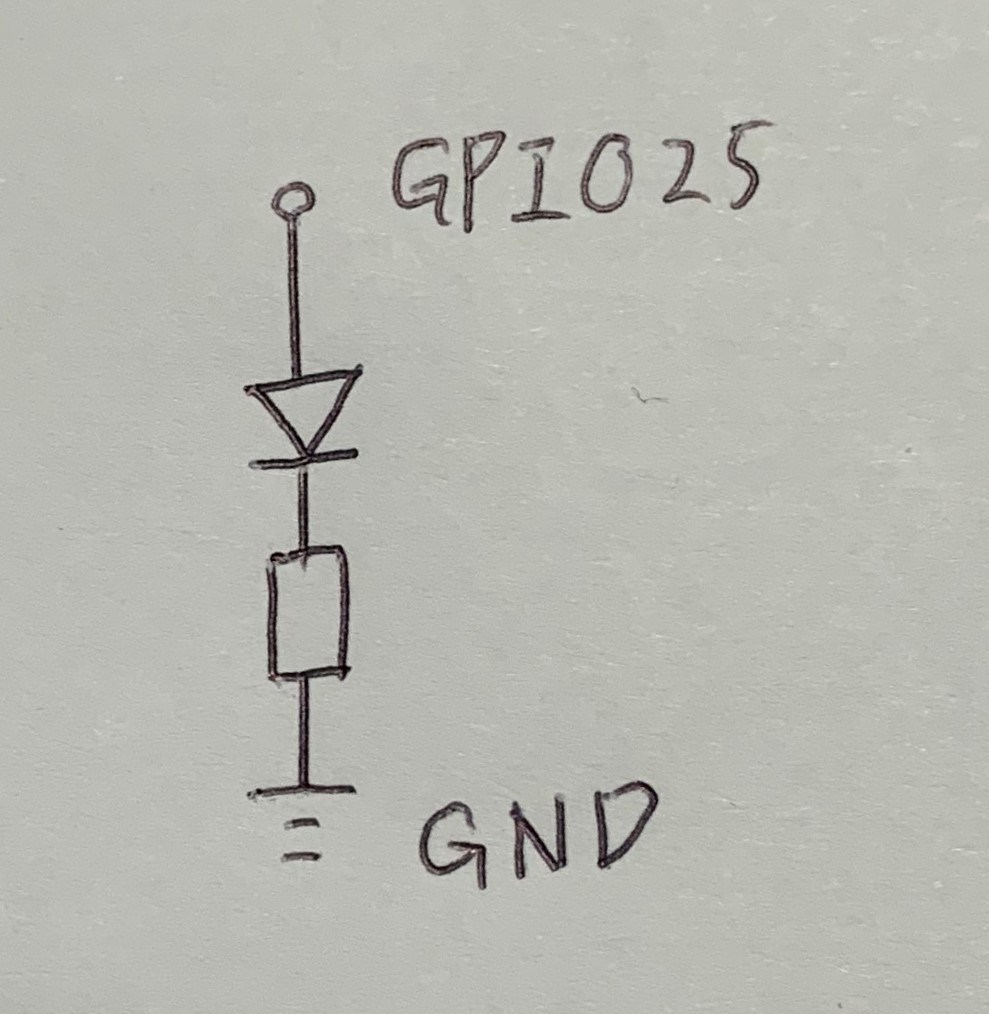 GPIO25
GND